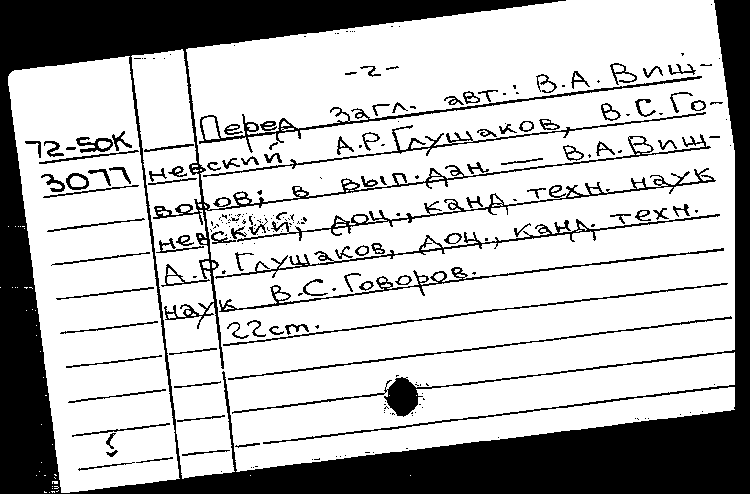 -2-
Перед загл. авт.: В.А. Виш-
72-50К
невский, А.Р. Глушаков, В.С. Го-
3077
воров; в вып. дан. — В.А. Виш-
невский, доц., канд. техн. наук
А.Р. Глушаков, доц., канд. техн.
наук В.С. Говоров.
22 ст.